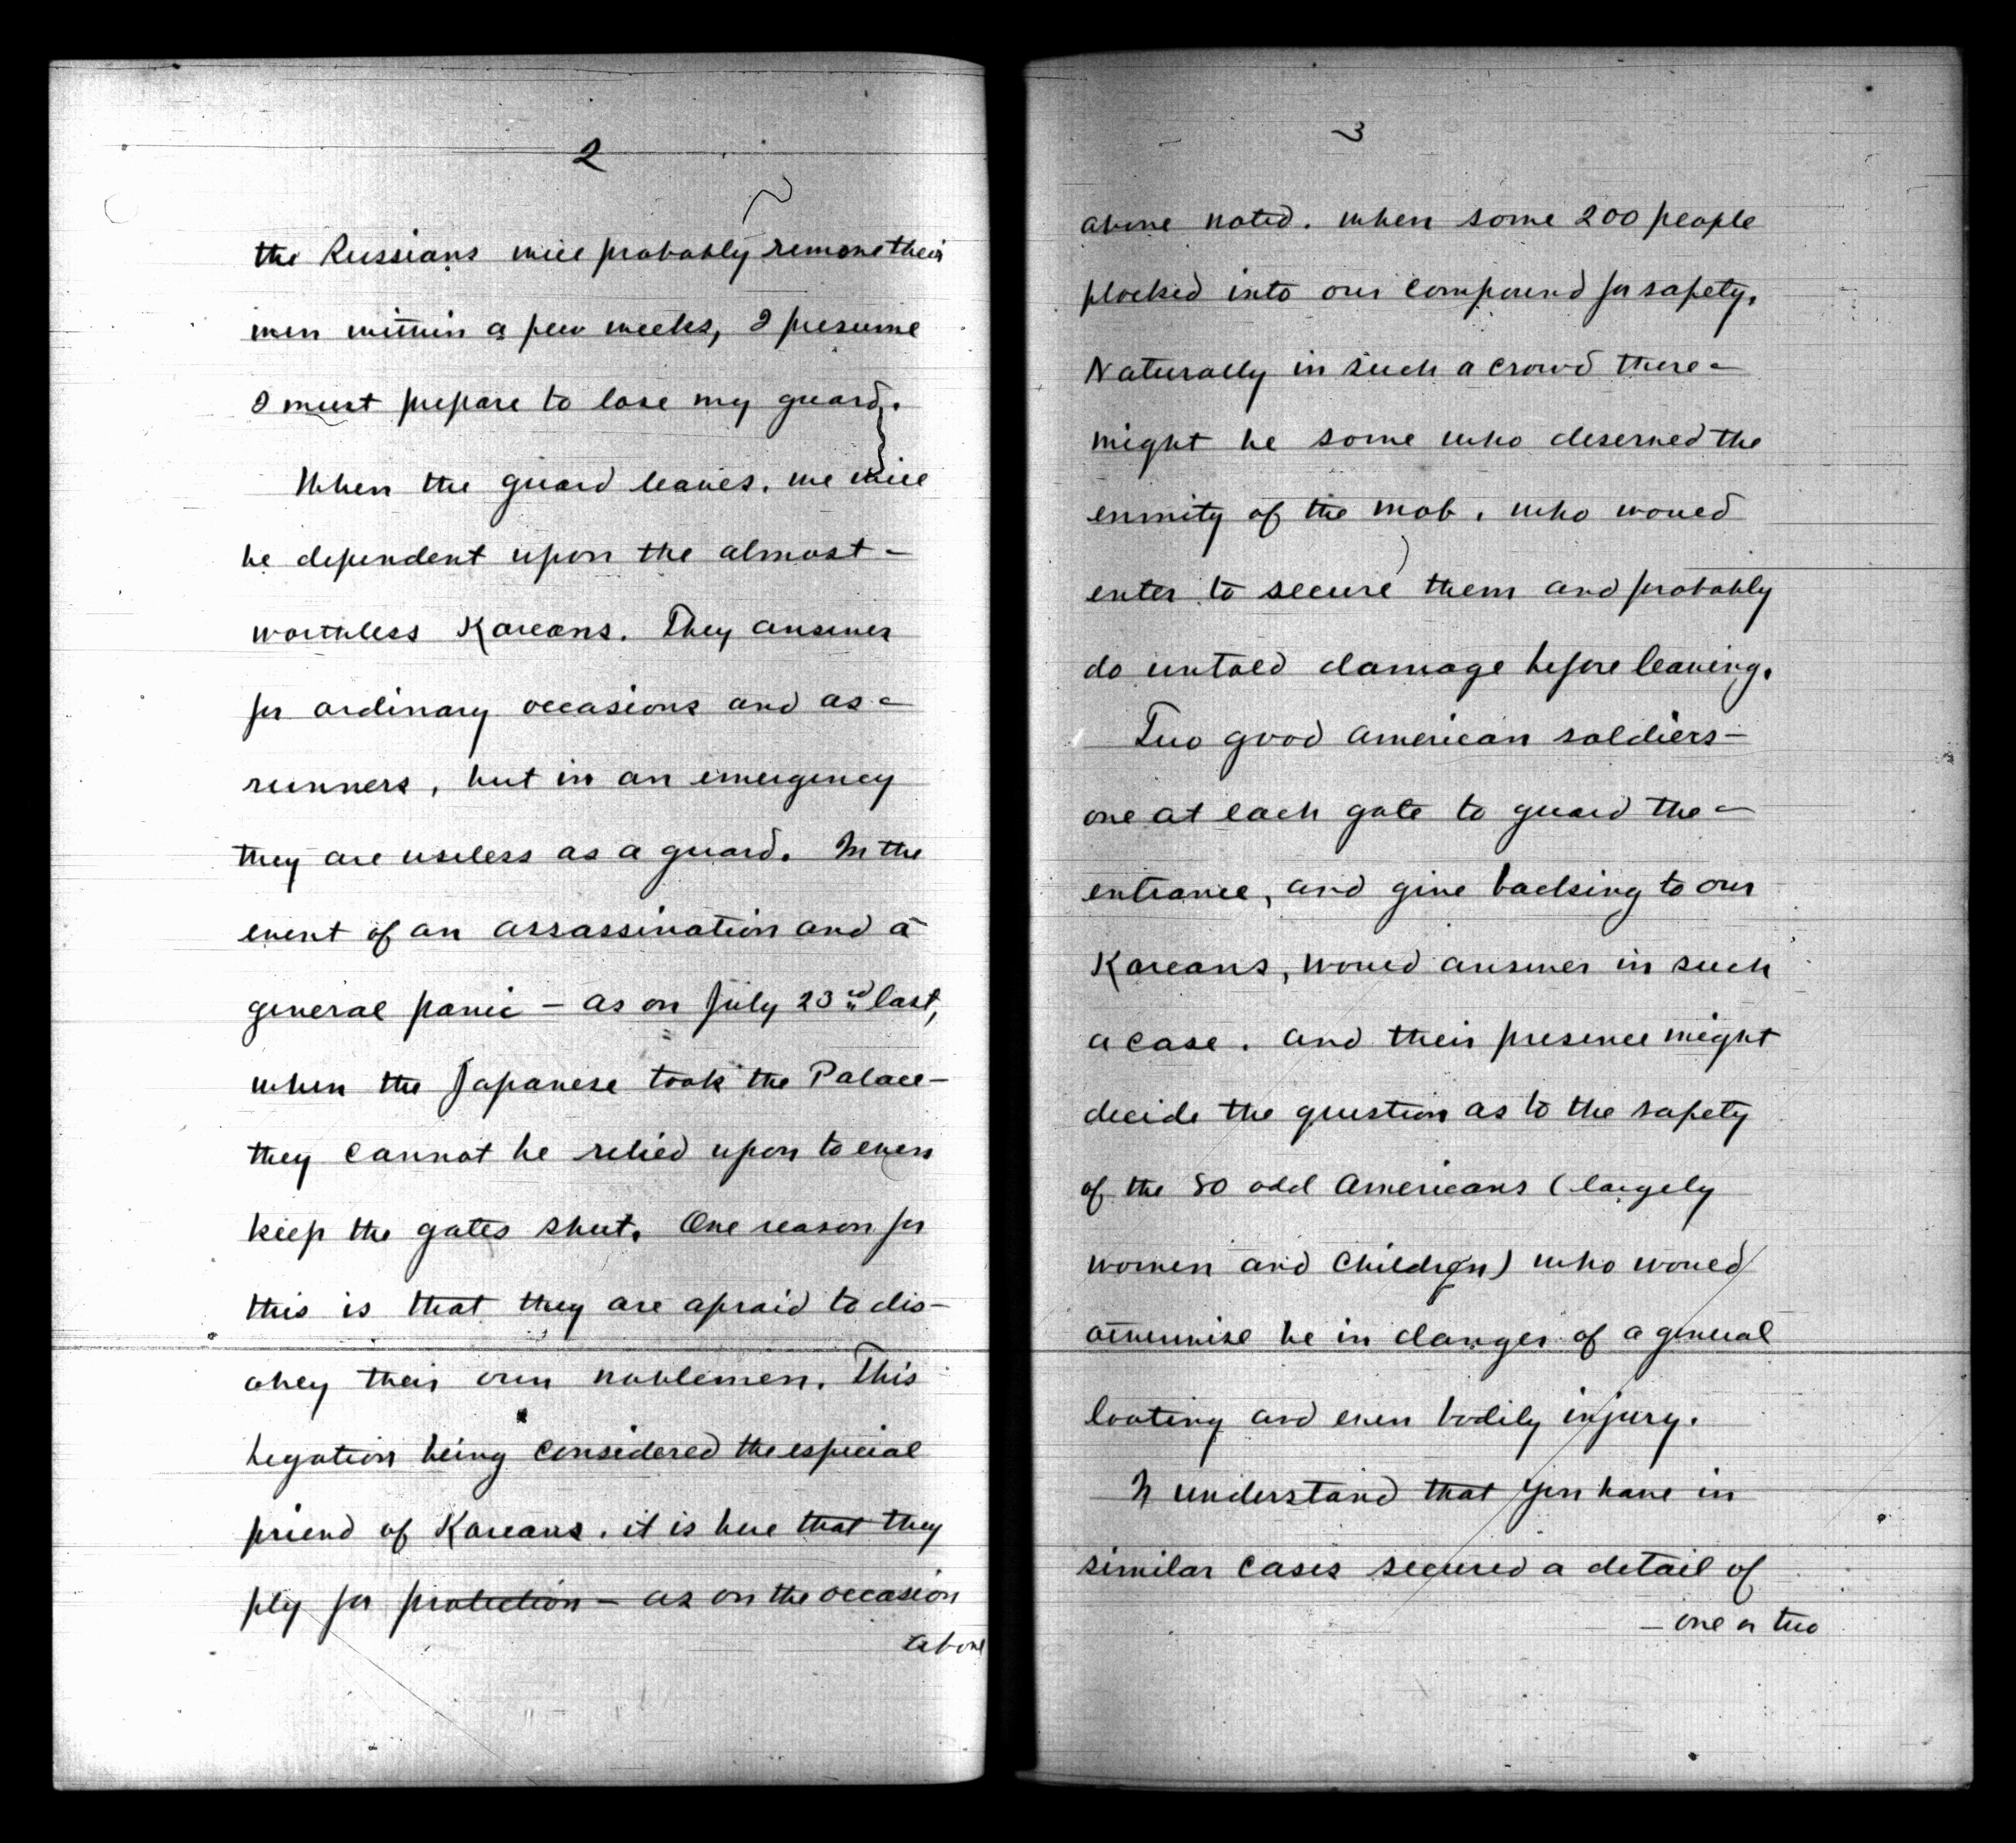 2
the Russians will probably remove their
men within a few weeks, I presume
I must prepare to lose my guard.
When the guard leaves, we will
be dependent upon the almost -
worthless Koreans. They answer
for ordinary occasions and as -
runners, but in an emergency
they are useless as a guard. In the
event of an assassination and a
general panic - as on July 23rd last,
when the Japanese took the Palace -
they cannot be relied upon to even
keep the gates shut. One reason for
this is that they are afraid to dis-
obey their own noblemen. This
Legation being considered the especial
friend of Koreans, it is here that they
fly for protection - as on the occasion
above
3
above noted, when some 200 people
flocked into our compound for safety.
Naturally in such a crowd there -
might be some who deserved the
enmity of the mob, who would
enter to secure them and probably
do untold damage before leaving.
Two good American soldiers -
one at each gate to guard the -
entrance, and give backing to our
Koreans, would answer in such
a case, and their presence might
decide the question as to the safety
of the 80 odd Americans (largely
women and children) who would
otherwise be in danger of a general
looting and even bodily injury.
I understand that you have in
similar cases secured a detail of
- one or two